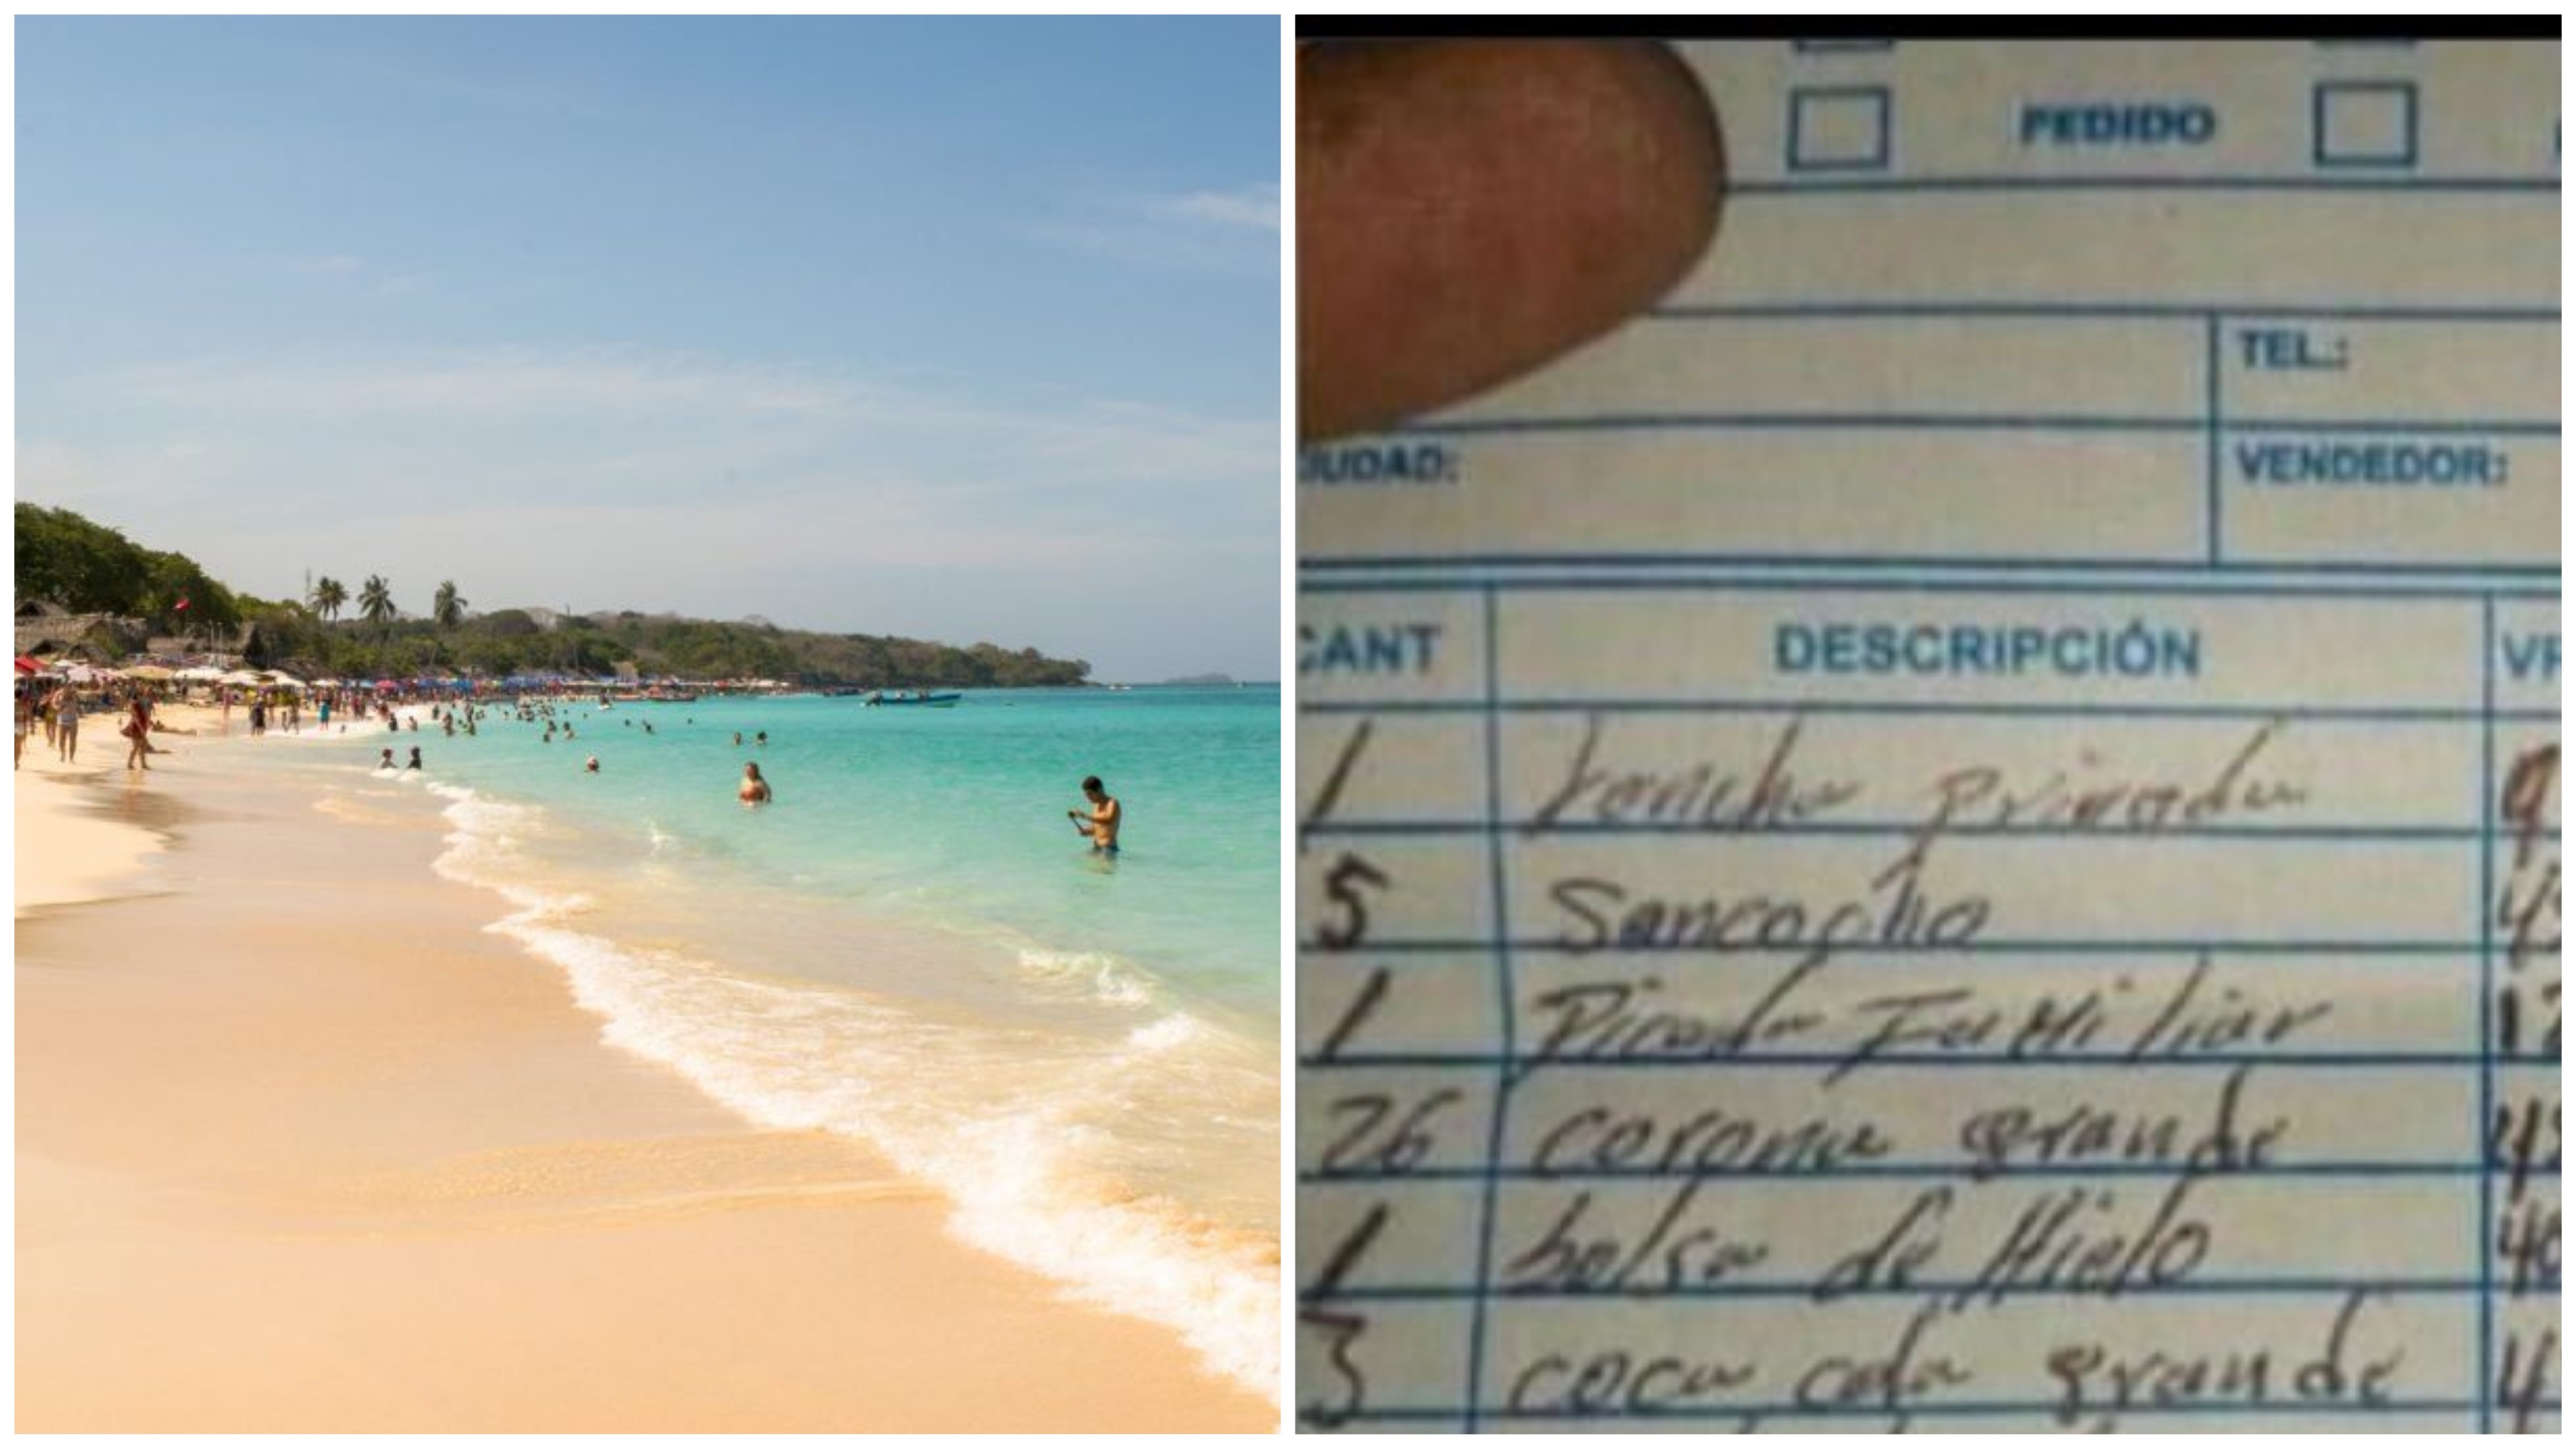 PEDIDO
TEL.:
IUDAD:
VENDEDOR:
CANT DESCRIPCIÓN VR
1 Lancha privada
5 Sancocho
1 Picada Familiar
26 corona grande
1 bolsa de Hielo 40
3 coca cola grande 4